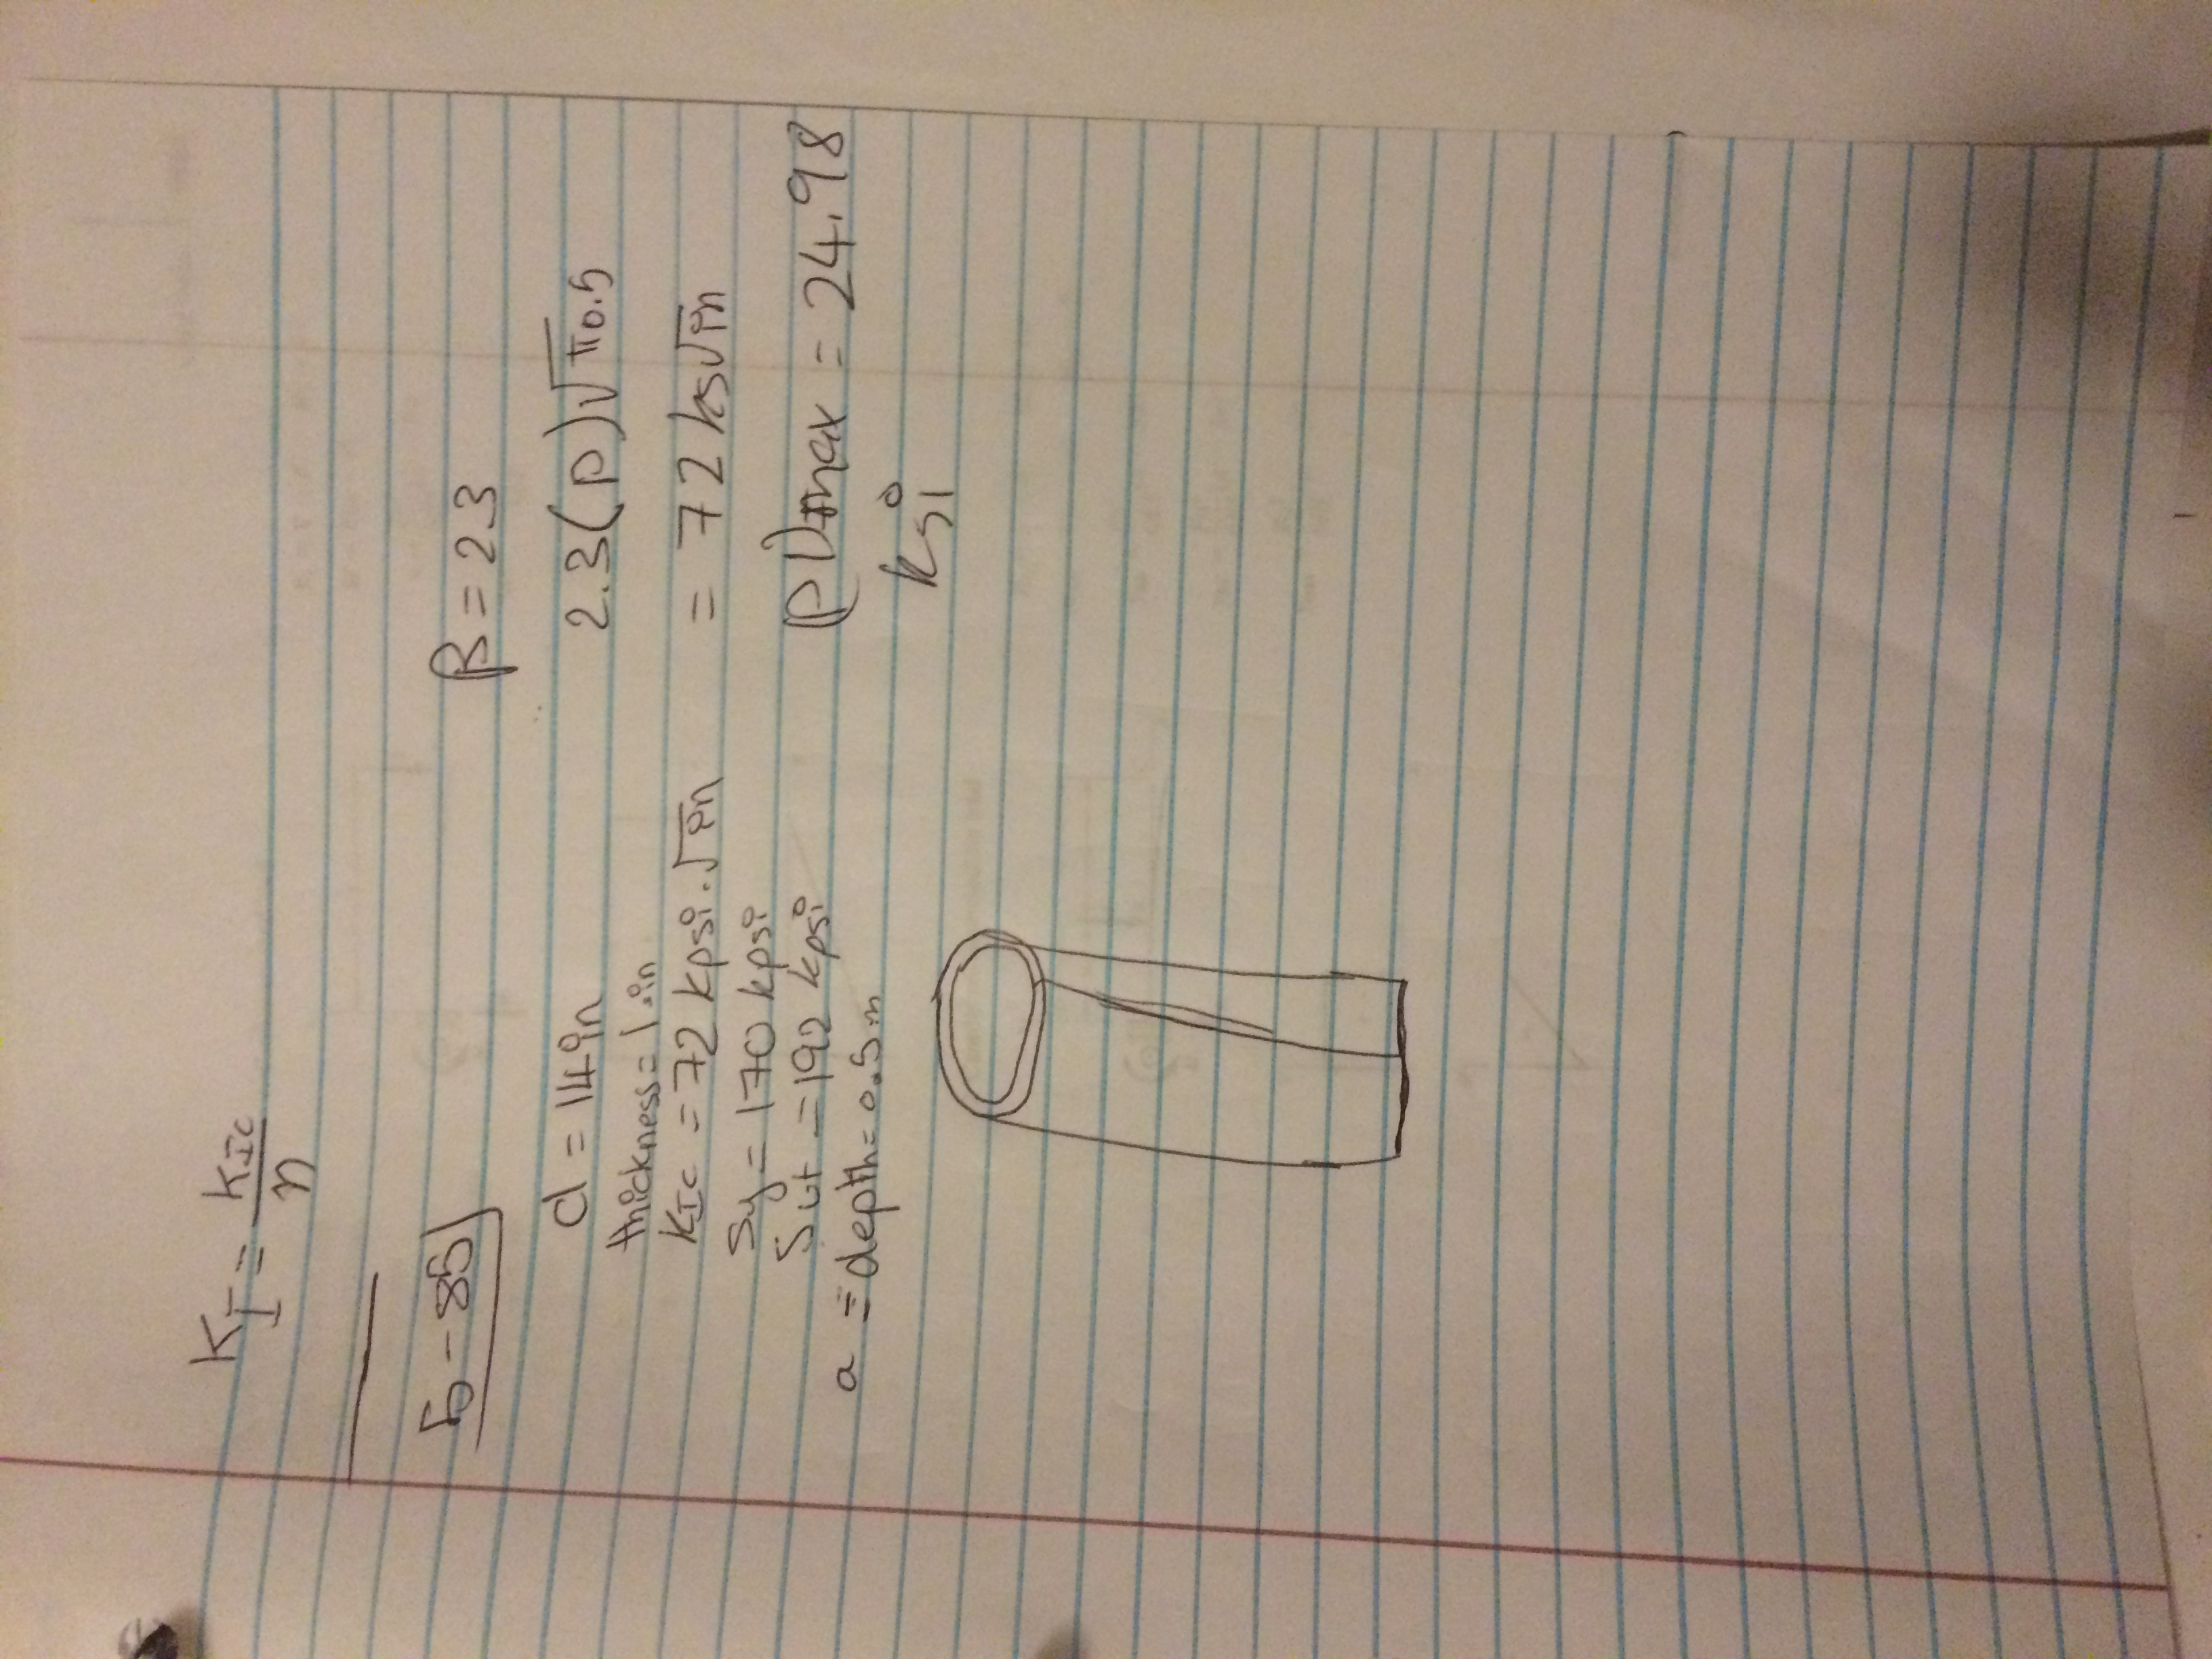 K_I = K_IC / n
5-85
β = 2.3
d = 14in
thickness = 1.in
K_IC = 72 kpsi.√in
Sy = 170 kpsi
Sut = 192 kpsi
a = depth = 0.5 in
2.3(p)√π0.5
= 72 ks√in
(p)max = 24.98
ksi